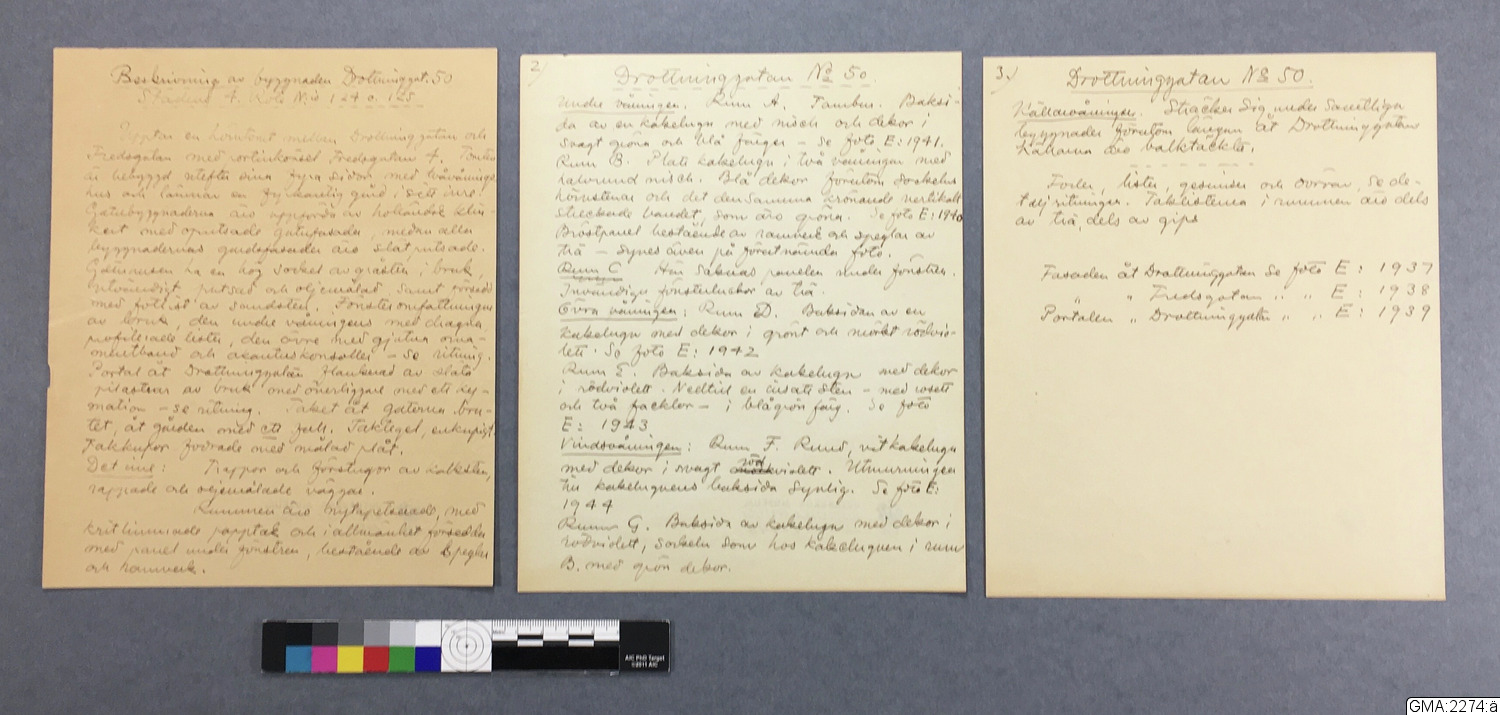 Beskrivning av byggnaden Drottninggat. 50
Staden 4. Rote N:o 124 o. 125
Upptar en hörntomt mellan Drottninggatan och
Fredsgatan med portinkörsel Fredsgatan 4. Tomten
är bebyggd utefter sina fyra sidor med tvåvånings
hus och lämnar en fyrkantig gård i sitt inre.
Gatubyggnaderna äro uppförda av holländsk klin-
kert med oputsade gatufasader medan alla
byggnadernas gårdsfasader äro slätputsade.
Gatuhusen ha en hög sockel av gråsten i bruk,
utvändigt putsad och oljemålad samt försedd
med fotlist av sandsten. Fönsteromfattningar
av bruk, den undre våningens med dragna
profilerade lister, den övre med gjutna orna-
mentband och akantuskonsoller - Se ritning.
Portal åt Drottninggatan flankerad av släta
pilastrar av bruk med överliggare med ett ky-
mation - se ritning. Taket åt gatorna bru-
tet, åt gården med ett fall. Taktegel, enkupigt.
Takkupor fodrade med målad plåt.
Det inre: Trappor och förstugor av kalksten,
rappade och oljemålade väggar.
Rummen äro nytapetserade, med
kritlimmade papptak och i allmänhet försedda
med panel under fönstren, bestående av speglar
och ramverk.
2)
Drottninggatan No 50.
Undre våningen. Rum A. Tambur. Baksi-
da av en kakelugn med nisch och dekor i
svagt gröna och blå färger - Se foto E:1941.
Rum B. Platt kakelugn i två våningar med
halvrund nisch. Blå dekor förutom sockelns
hörnstenar och det densamma krönande vertikalt
streckade bandet, som äro gröna. Se foto E:1940
Bröstpanel bestående av ramverk och speglar av
trä - synes även på förutnämnda foto.
Rum C Här saknas panelen under fönstren.
Invändiga fönsterluckor av trä.
Övra våningen: Rum D. Baksidan av en
kakelugn med dekor i grönt och mörkt rödvio-
lett. Se foto E: 1942
Rum E. Baksida av kakelugn med dekor
i rödviolett. Nedtill en insatt sten - med rosett
och två facklor - i blågrön färg. Se foto
E: 1943
Vindsvåningen: Rum F. Rund, vit kakelugn
med dekor i svagt rödviolett. Utmurningen
till kakelugnens baksida synlig. Se foto E:
1944
Rum G. Baksida av kakelugn med dekor i
rödviolett, sockeln som hos kakelugnen i rum
B. med grön dekor.
3.)
Drottninggatan No 50.
Källarvåningen. Sträcker sig under samtliga
byggnader förutom längan åt Drottninggatan
Källarna äro balktäckta.
Foder, lister, gesimser och dörrar, se de-
taljritningar. Taklisterna i rummen äro dels
av trä, dels av gips
Fasaden åt Drottninggatan Se foto E: 1937
" " Fredsgatan " " E: 1938
Portalen " Drottninggatan " " E: 1939
AIC PhD Target
©2011 AIC
GMA:2274:a